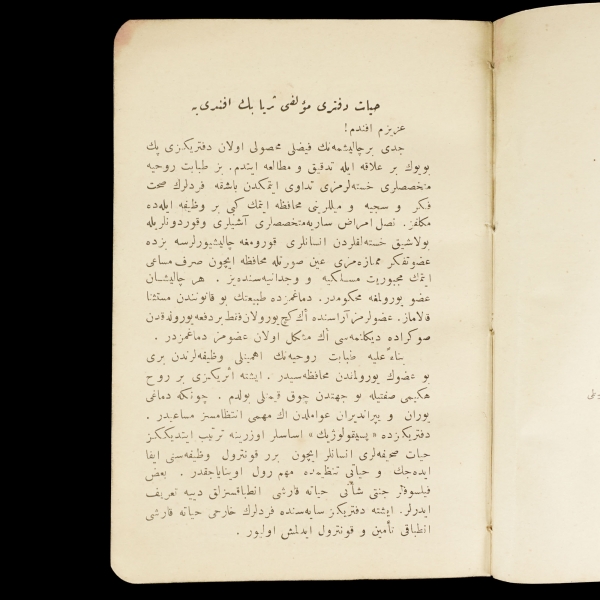 حیات دفتری مؤلفی ثریا بك افندی‌یه
عزیزم افندم!
جدی بر چالیشمه‌نك فیضلی محصولی اولان دفتریكزی پك
بویوك بر علاقه ایله تدقیق و مطالعه ایتدم. بز طبابت روحیه
متخصصلری خسته‌لرمزی تداوی ایتمكدن باشقه فردلرك صحت
فكر و سجیه و میللرینی محافظه ایتمك كبی بر وظیفه ایله‌ده
مكلفز. نصل امراض ساریه‌متخصصلری آشیلری وقوردونلریله
بولاشیق خسته‌لقلردن انسانلری قورومغه چالیشیورلرسه بزده
عضوتفكر ممازه‌مزی عین صورتله محافظه ایچون صرف مساعی
ایتمك مجبوریت مسلكیه و وجدانیه‌سنده‌یز . هر چالیشان
عضو یورولمغه محكومدر. دماغمزده طبیعتك بو قانونندن مستثنا
قالاماز. عضولرمز آراسنده اڭ كچ یورولان فقط بر دفعه یورولدقدن
صوكراده دیكلنمه‌سی اڭ مشكل اولان عضومز دماغمزدر .
بناءً علیه طبابت روحیه‌نك اهمیتلی وظیفه‌لرندن بری
بو عضوك یورولماندن محافظه‌سیدر . ایشته اثریكزی بر روح
حكیمی صفتیله بو جهتدن چوق قیمتلی بولدم . چونكه دماغی
یوران و ییراندیران عواملدن اڭ مهمی انتظامسز مساعیدر .
دفتریكزده « پسیقولوژیك » اساسلر اوزرینه ترتیب ایتدیككز
حیات صحیفه‌لری انسانلر ایچون برر قونترول وظیفه‌سنی ایفا
ایده‌جك و حیاتی تنظیمده مهم رول اوینایاجقدر . بعض
فیلسوفلر جنتی شأنی حیاته قارشی انطباقسزلق دییه تعریف
ایدرلر. ایشته دفتریكز سایه‌سنده فردلرك خارجی حیاته قارشی
انطباقی تأمین و قونترول ایدلمش اولیور .